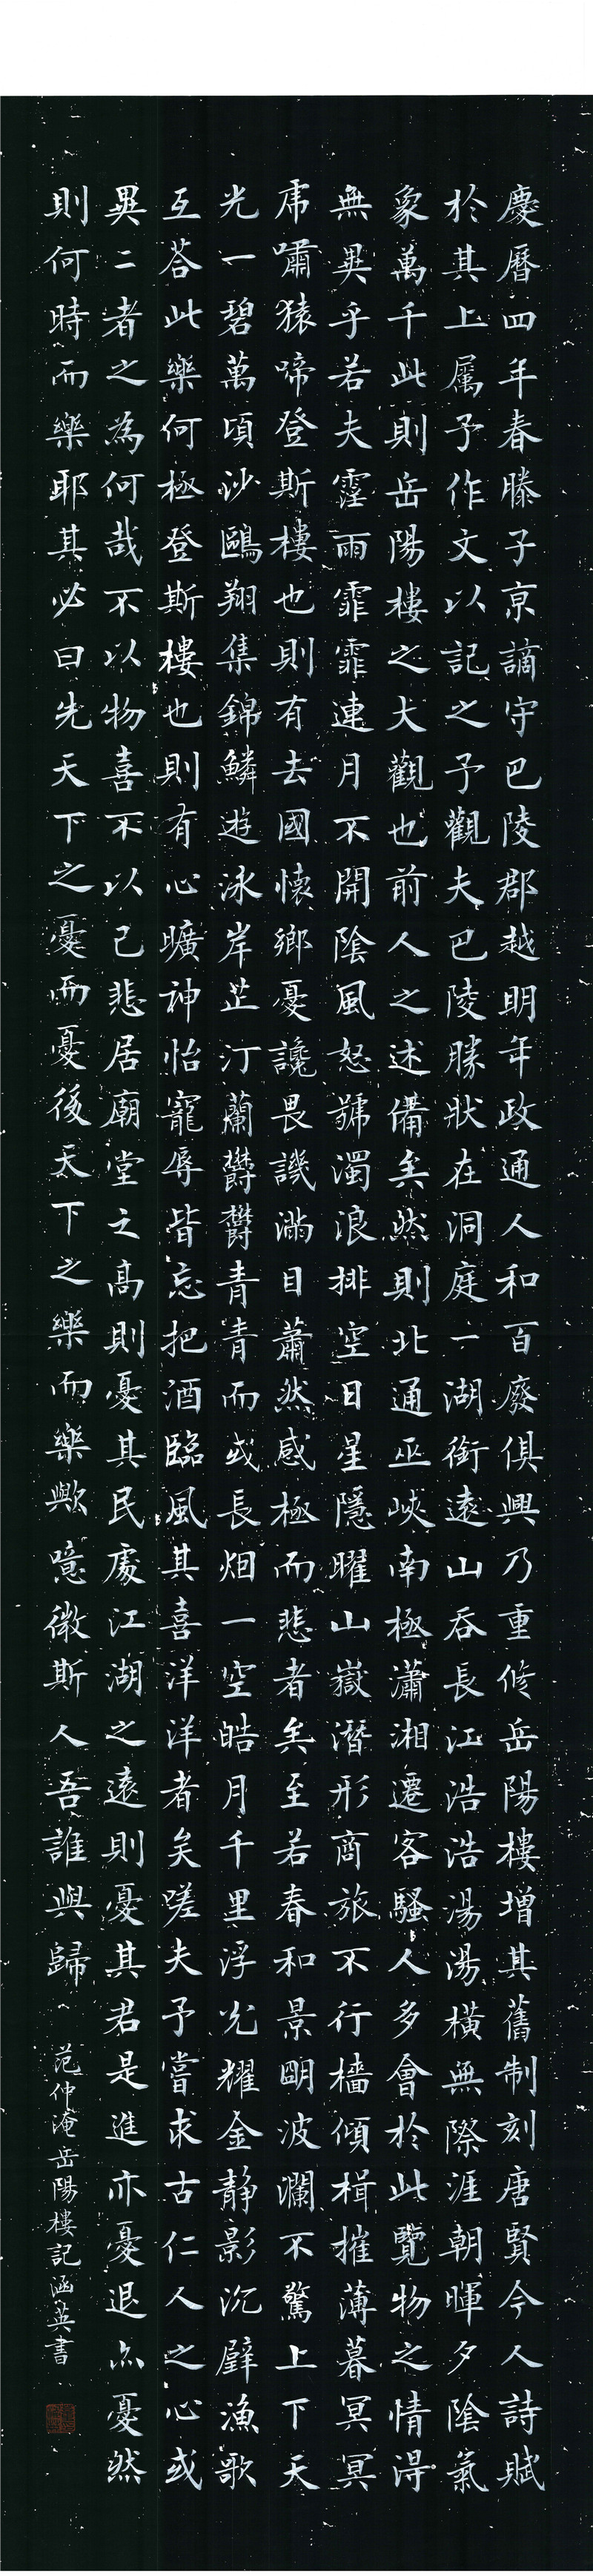 慶曆四年春滕子京謫守巴陵郡越明年政通人和百廢俱興乃重修岳陽樓增其舊制刻唐賢今人詩賦
於其上屬予作文以記之予觀夫巴陵勝狀在洞庭一湖銜遠山吞長江浩浩湯湯橫無際涯朝暉夕陰氣
象萬千此則岳陽樓之大觀也前人之述備矣然則北通巫峽南極瀟湘遷客騷人多會於此覽物之情得
無異乎若夫霪雨霏霏連月不開陰風怒號濁浪排空日星隱曜山嶽潛形商旅不行檣傾楫摧薄暮冥冥
虎嘯猿啼登斯樓也則有去國懷鄉憂讒畏譏滿目蕭然感極而悲者矣至若春和景明波瀾不驚上下天
光一碧萬頃沙鷗翔集錦鱗遊泳岸芷汀蘭欝欝青青而或長烟一空皓月千里浮光耀金静影沉璧漁歌
互荅此樂何極登斯樓也則有心曠神怡寵辱皆忘把酒臨風其喜洋洋者矣嗟夫予嘗求古仁人之心或
異二者之為何哉不以物喜不以己悲居廟堂之高則憂其民處江湖之遠則憂其君是進亦憂退亦憂然
則何時而樂耶其必曰先天下之憂而憂後天下之樂而樂歟噫微斯人吾誰與歸
范仲淹岳陽樓記涵英書